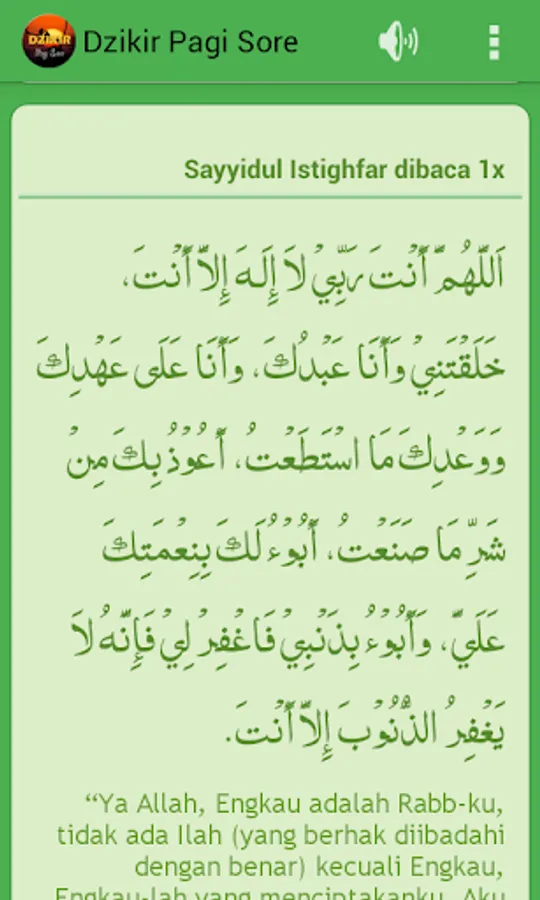 Dzikir Pagi Sore
DZIKIR
Sayyidul Istighfar dibaca 1x
اَللَّهُمَّ أَنْتَ رَبِّيْ لاَ إِلَـهَ إِلاَّ أَنْتَ،
خَلَقْتَنِيْ وَأَنَا عَبْدُكَ، وَأَنَا عَلَى عَهْدِكَ
وَوَعْدِكَ مَا اسْتَطَعْتُ، أَعُوْذُ بِكَ مِنْ
شَرِّ مَا صَنَعْتُ، أَبُوْءُ لَكَ بِنِعْمَتِكَ
عَلَيَّ، وَأَبُوْءُ بِذَنْبِيْ فَاغْفِرْ لِيْ فَإِنَّهُ لاَ
يَغْفِرُ الذُّنُوْبَ إِلاَّ أَنْتَ.
“Ya Allah, Engkau adalah Rabb-ku,
tidak ada Ilah (yang berhak diibadahi
dengan benar) kecuali Engkau,
Engkau-lah yang menciptakanku. Aku